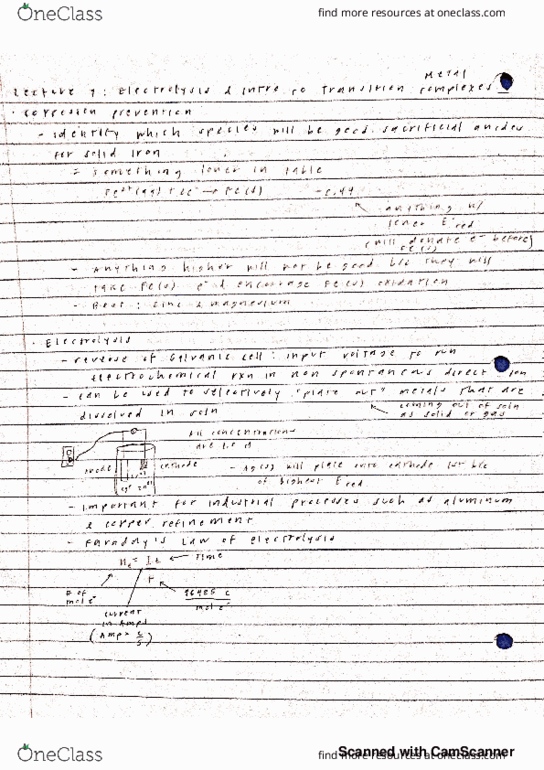 OneClass
find more resources at oneclass.com
Metal
Lecture 7: Electrolysis & intro to Transition complexes
· corrosion prevention
- identify which species will be good sacrificial anodes
for solid iron
= something lower in table
Fe²⁺(aq) + 2e⁻ → Fe(s) -0.44
anything w/
lower E°red
(will donate e⁻ before)
Fe(s)
- Anything higher will not be good b/c they will
take Fe(s) e⁻ and encourage Fe(s) oxidation
- Best: zinc & magnesium
· Electrolysis
- reverse of Galvanic cell: input voltage to run
electrochemical rxn in non spontaneous direction
- can be used to selectively "plate out" metals that are
dissolved in soln
coming out of soln
as solid or gas
All concentrations
are 1.0 M
anode
cathode
- Ag(s) will plate onto cathode 1st b/c
of highest E°red
- important for industrial processes such as aluminum
& copper refinement
- Faraday's Law of electrolysis
nₑ = I·t ← Time
F
# of
mol e⁻
96485 C
mol e⁻
current
in Amps
(Amp = C/S)
OneClass
find more resources at oneclass.com
Scanned with CamScanner